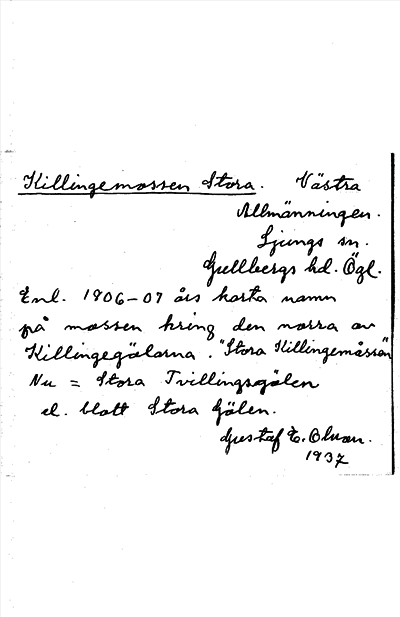 Killingemossen Stora. Västra
Allmänningen.
Ljungs sn.
Gullbergs hd. Ögl.
Enl. 1906-07 års karta namn
på mossen kring den norra av
Killingegölarna. "Stora Killingemåssan"
Nu = Stora Tvillingsgölen
el. blott Stora Gölen.
Gustaf E. Olsson.
1937